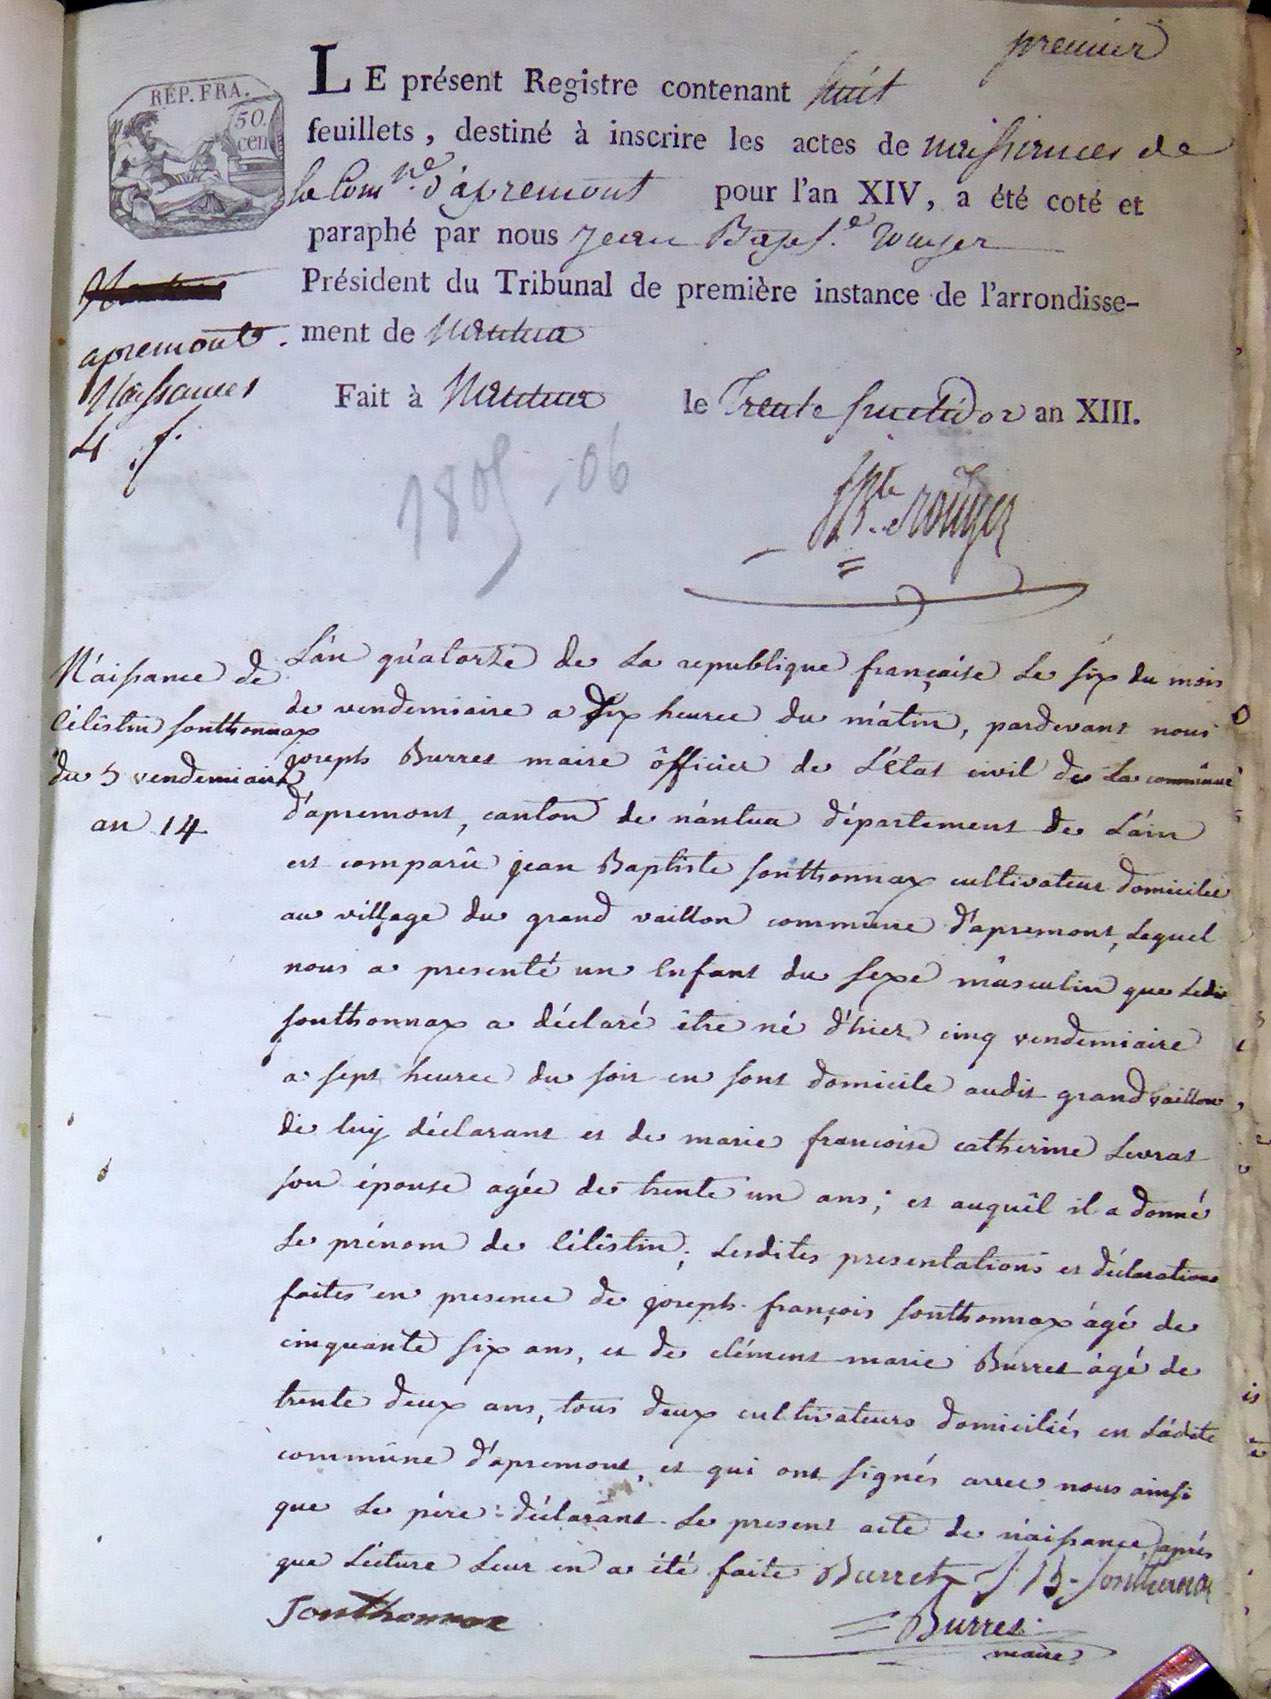 premier
LE présent Registre contenant huit
feuillets, destiné à inscrire les actes de naissances de
la Comne d'apremont pour l'an XIV, a été coté et
paraphé par nous jean Bapt.e rouyer
Président du Tribunal de première instance de l'arrondisse-
ment de Nantua
Fait à Nantua le Trente fructidor an XIII.
REP. FRA.
50.
cen
apremont.
Naissances
4 f.
1805-06
JBte rouyer
Náissance de
Céléstin sonthonnax
du 5 vendemiaire
an 14
L'án quatorze de la republique française le six du mois
de vendemiaire a dix heures du mátin, pardevant nous
joseph Burret maire ôfficier de l'état civil de la commûne
d'apremont, canton de nántua département de l'áin
est comparû jean Baptiste sonthonnax cultivateur domicilié
au village du grand vaillon commûne d'apremont, lequel
nous a presenté un enfant du sexe mâsculin que ledit
sonthonnax a déclaré être né d'hier cinq vendemiaire
a sept heures du soir en sont domicile audit grand vaillon
de luy déclarant et de marie francoise catherine Levrat
son épouse agée de trente un ans; et auquîl il a donné
le prénom de Céléstin; lesdites presentations et déclarations
faites en presence de joseph françois sonthonnax ágé de
cinquante six ans, et de clément marie Burret ágé de
trente deux ans, tous deux cultivateurs domiciliés en ládite
commûne d'apremont, et qui ont signés avec nous ainsi
que le père déclarant le present acte de náissance après
que lécture leur en a été faite Burret J B Sonthonax
Sonthonnax
Burret
maire